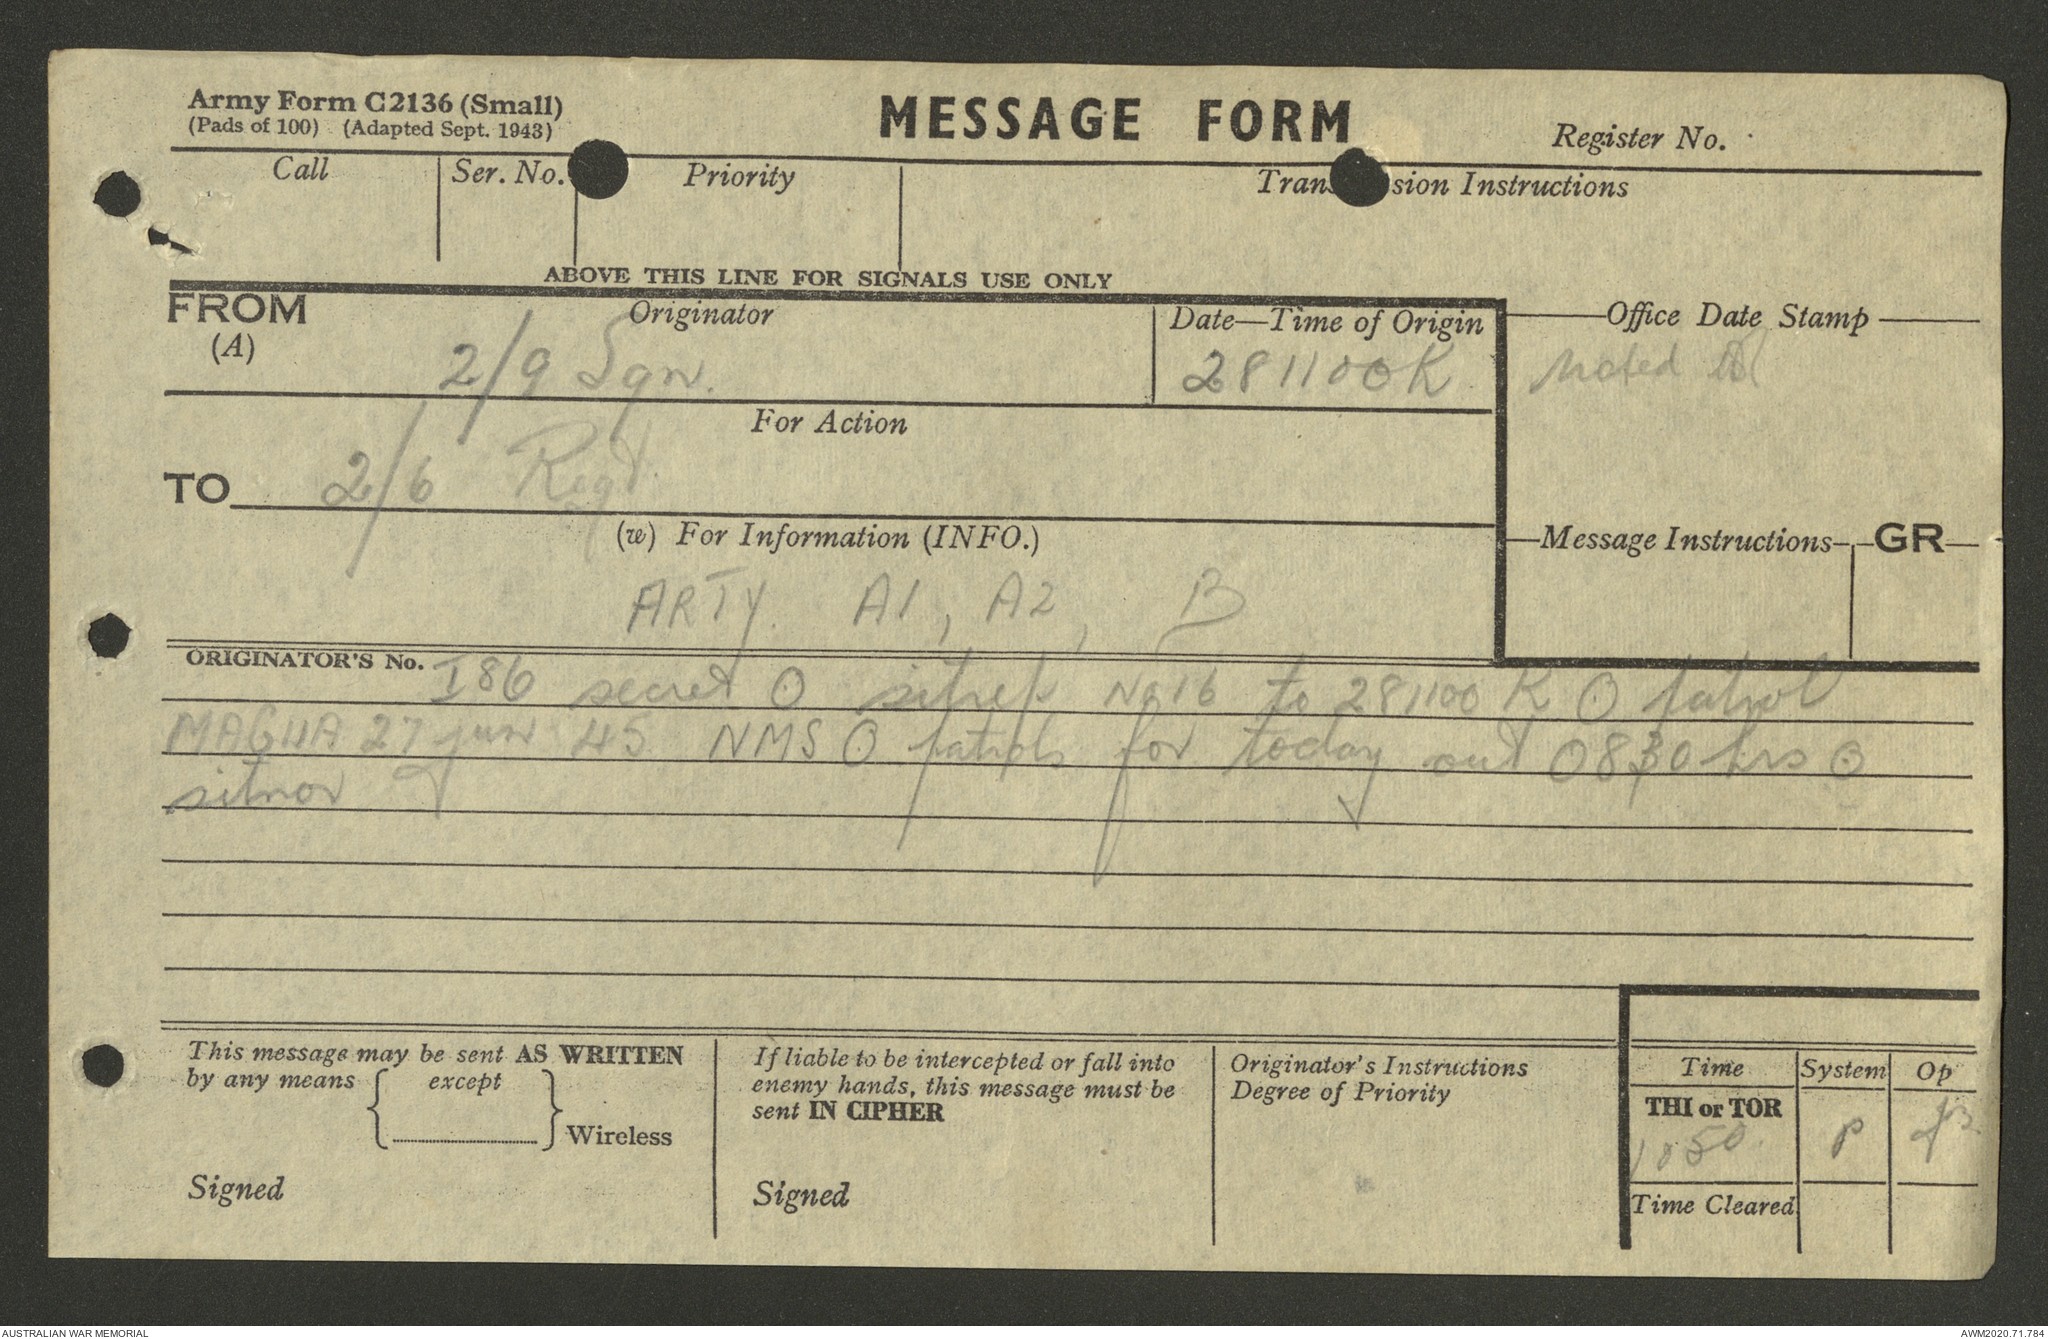 Army Form C2136 (Small)
(Pads of 100) (Adapted Sept. 1943)
MESSAGE FORM
Register No.
Call
Ser. No.
Priority
Transmission Instructions
ABOVE THIS LINE FOR SIGNALS USE ONLY
FROM
(A)
Originator
2/9 Sqn.
Date—Time of Origin
281100K
Office Date Stamp
Noted
For Action
TO 2/6 Regt.
(w) For Information (INFO.)
Message Instructions
GR
ARTY. A1, A2, B
ORIGINATOR'S No.
I86 secret O sitrep No16 to 281100K O patrol
MAGHA 27 jun 45 NMS O patrols for today out 0830 hrs O
sitnor
This message may be sent AS WRITTEN
by any means { except } Wireless
Signed
If liable to be intercepted or fall into
enemy hands, this message must be
sent IN CIPHER
Signed
Originator's Instructions
Degree of Priority
Time System Op
THI or TOR
1050. P
Time Cleared
AUSTRALIAN WAR MEMORIAL
AWM2020.71.784